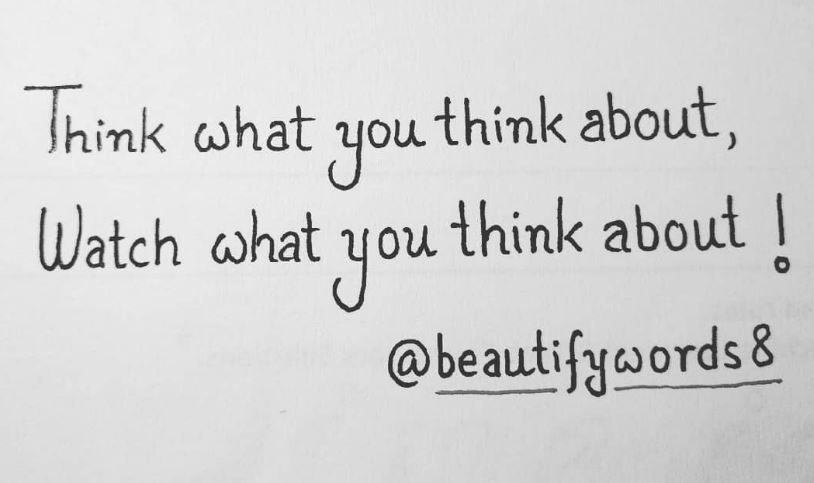 Think what you think about,
Watch what you think about !
@beautifywords8